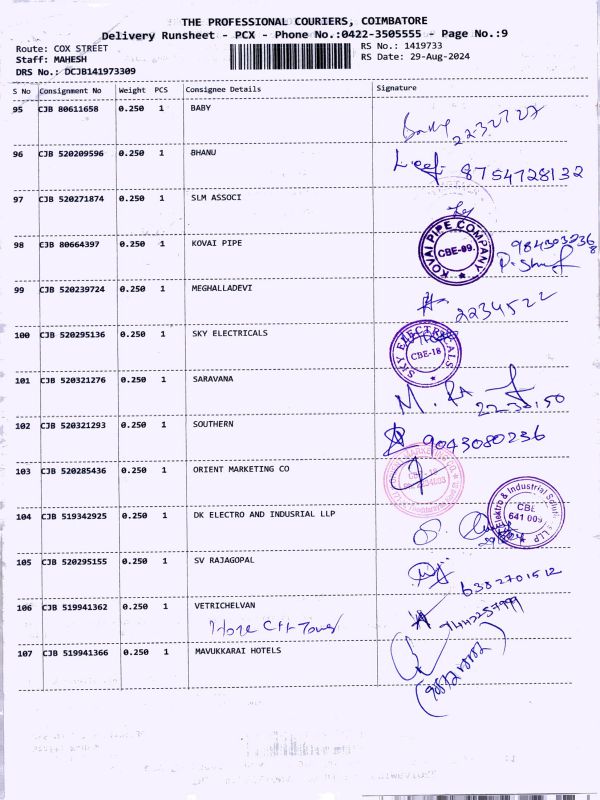 THE PROFESSIONAL COURIERS, COIMBATORE
Delivery Runsheet - PCX - Phone No.:0422-3505555 - Page No.:9
Route: COX STREET
RS No.: 1419733
Staff: MAHESH
RS Date: 29-Aug-2024
DRS No.: DCJB141973309
S No Consignment No Weight PCS Consignee Details Signature
95 CJB 80611658 0.250 1 BABY
96 CJB 520209596 0.250 1 BHANU
8754728132
97 CJB 520271874 0.250 1 SLM ASSOCI
98 CJB 80664397 0.250 1 KOVAI PIPE
KOVAI PIPE COMPANY
CBE-09.
99 CJB 520239724 0.250 1 MEGHALLADEVI
2234522
100 CJB 520295136 0.250 1 SKY ELECTRICALS
SKY ELECTRICALS
CBE-18
101 CJB 520321276 0.250 1 SARAVANA
102 CJB 520321293 0.250 1 SOUTHERN
9043080236
103 CJB 520285436 0.250 1 ORIENT MARKETING CO
104 CJB 519342925 0.250 1 DK ELECTRO AND INDUSRIAL LLP
Elektro & Industrial
CBE
641 009
LLP
105 CJB 520295155 0.250 1 SV RAJAGOPAL
6382701512
106 CJB 519941362 0.250 1 VETRICHELVAN
107 CJB 519941366 0.250 1 MAVUKKARAI HOTELS